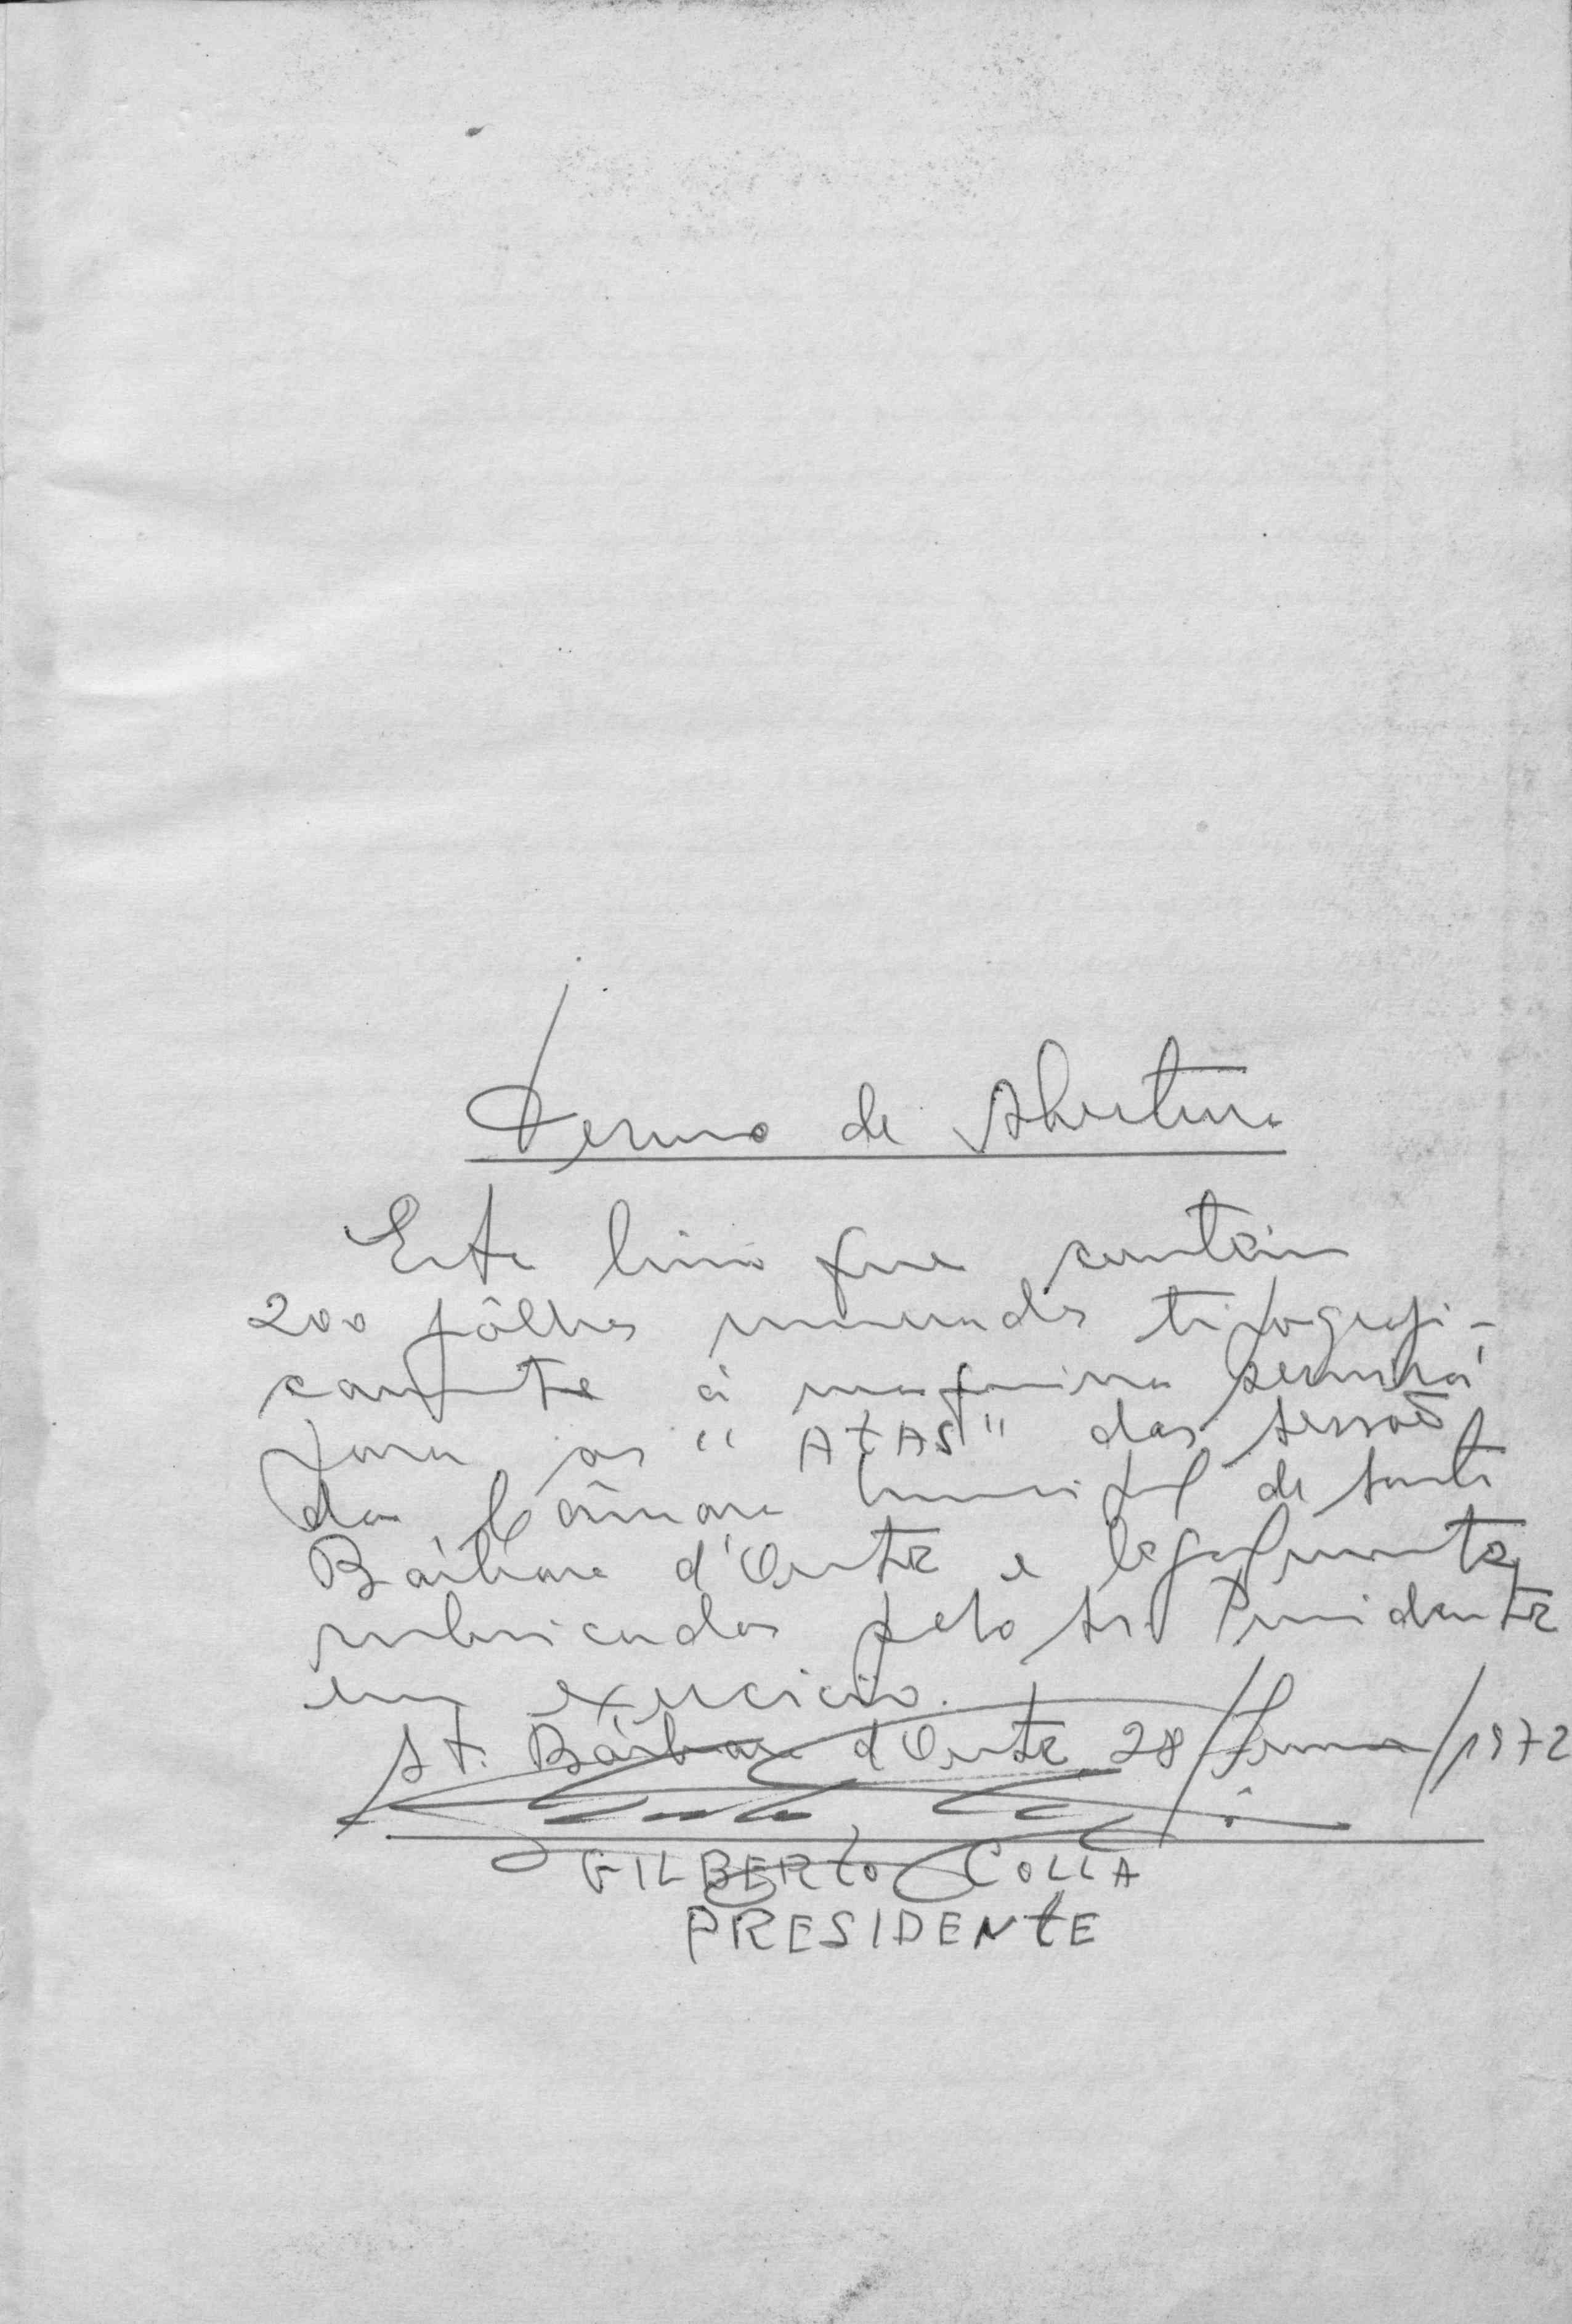 Termo de Abertura
Este livro que contém
200 fôlhas numeradas tipografi-
camente à maquina servirá
para as "ATAS" das sessões
da Câmara Municipal de Santa
Bárbara d'Oeste e legalmente
rubricadas pelo Sr. Presidente
em exercicio.
St. Bárbara d'Oeste 28/ /1972
GILBERTO COLLA
PRESIDENTE